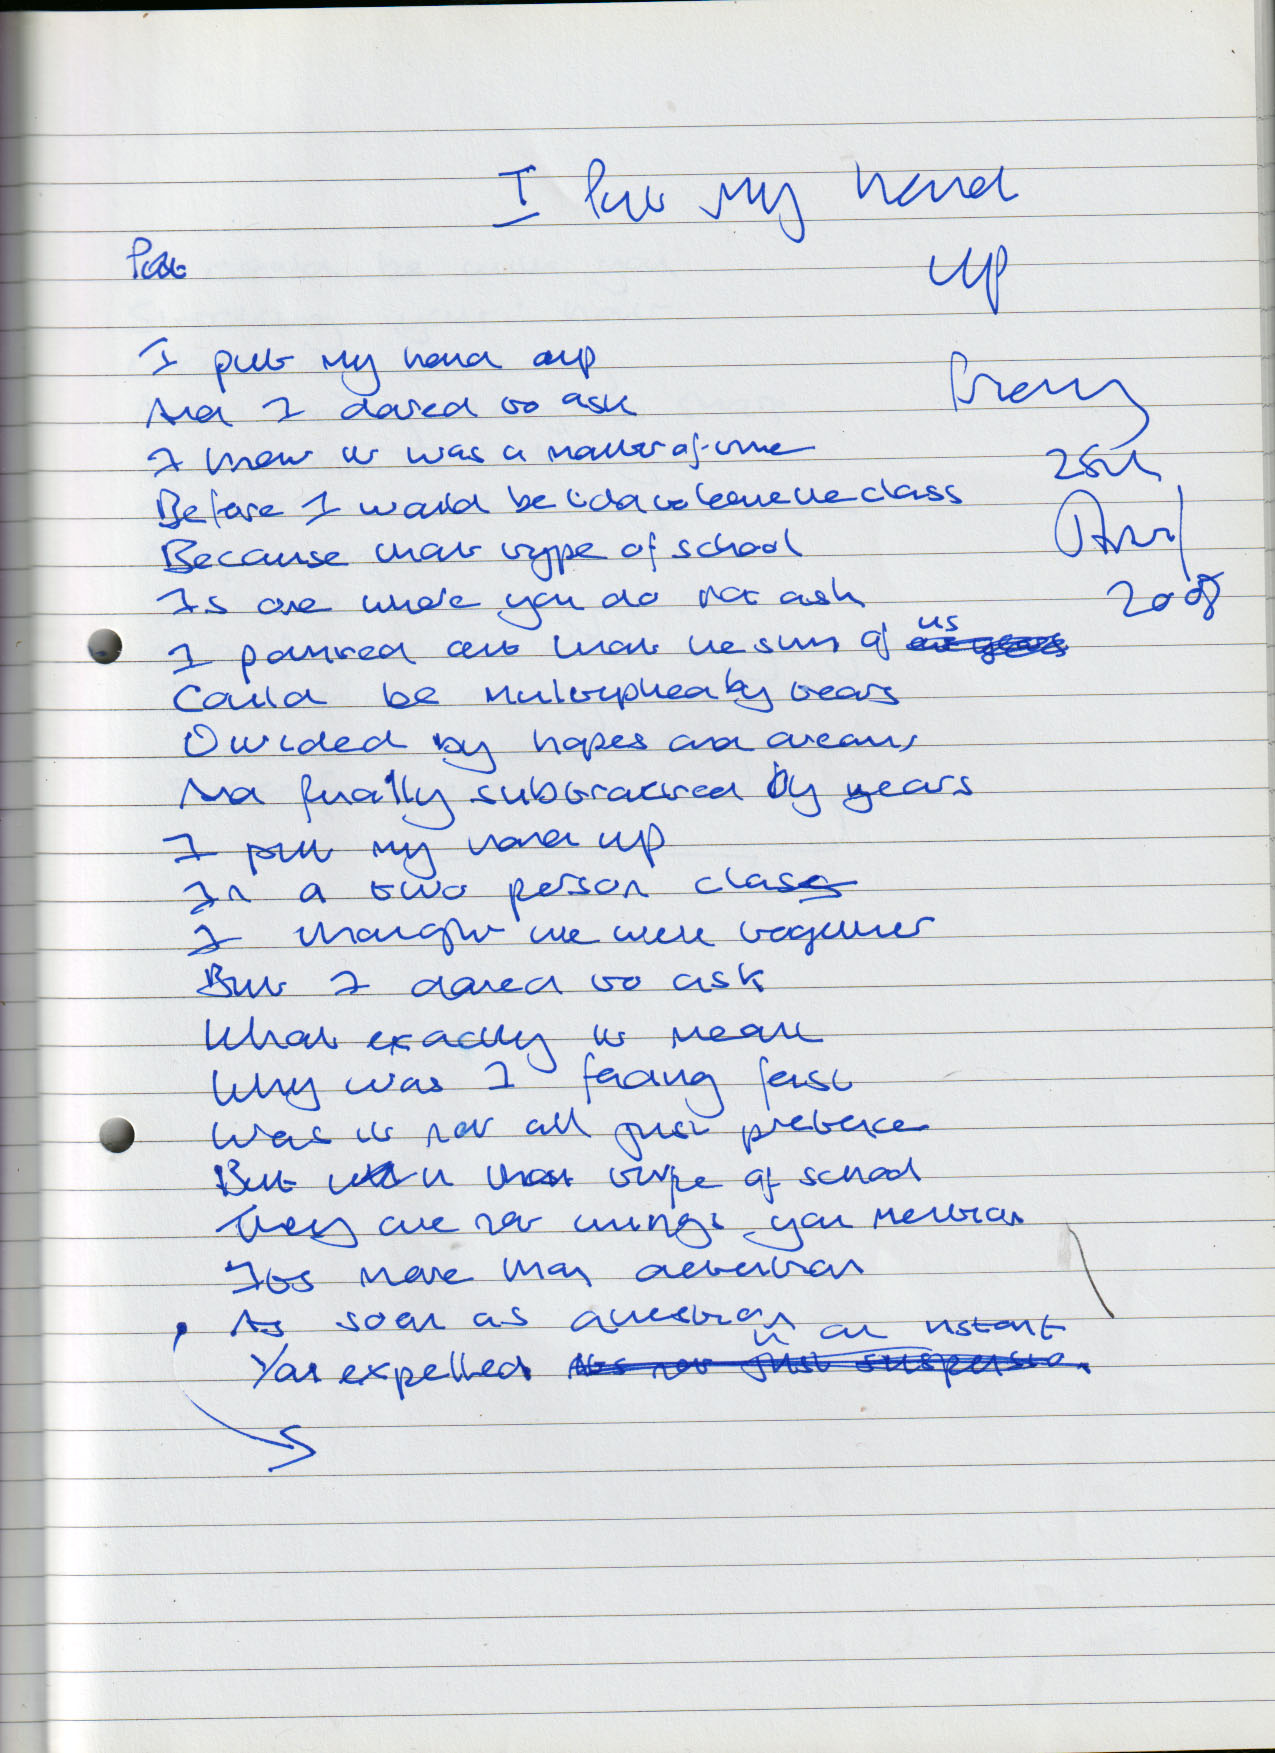 I Put My hand
up
I put my hand up
And I dared to ask
I knew it was a matter of time
Before I would be told to leave the class
Because that type of school
Is one where you do not ask
Friday
25th
April
2008
I pointed out that the sum of us
Could be multiplied by tears
Divided by hopes and dreams
And finally subtracted by years
I put my hand up
In a two person class
I thought we were together
But I dared to ask
What exactly it meant
Why was I fading fast
Was it not all just pretence
But in that type of school
They are not things you mention
Its more than detention
As soon as question
in an instant
You expelled. its not just suspension.